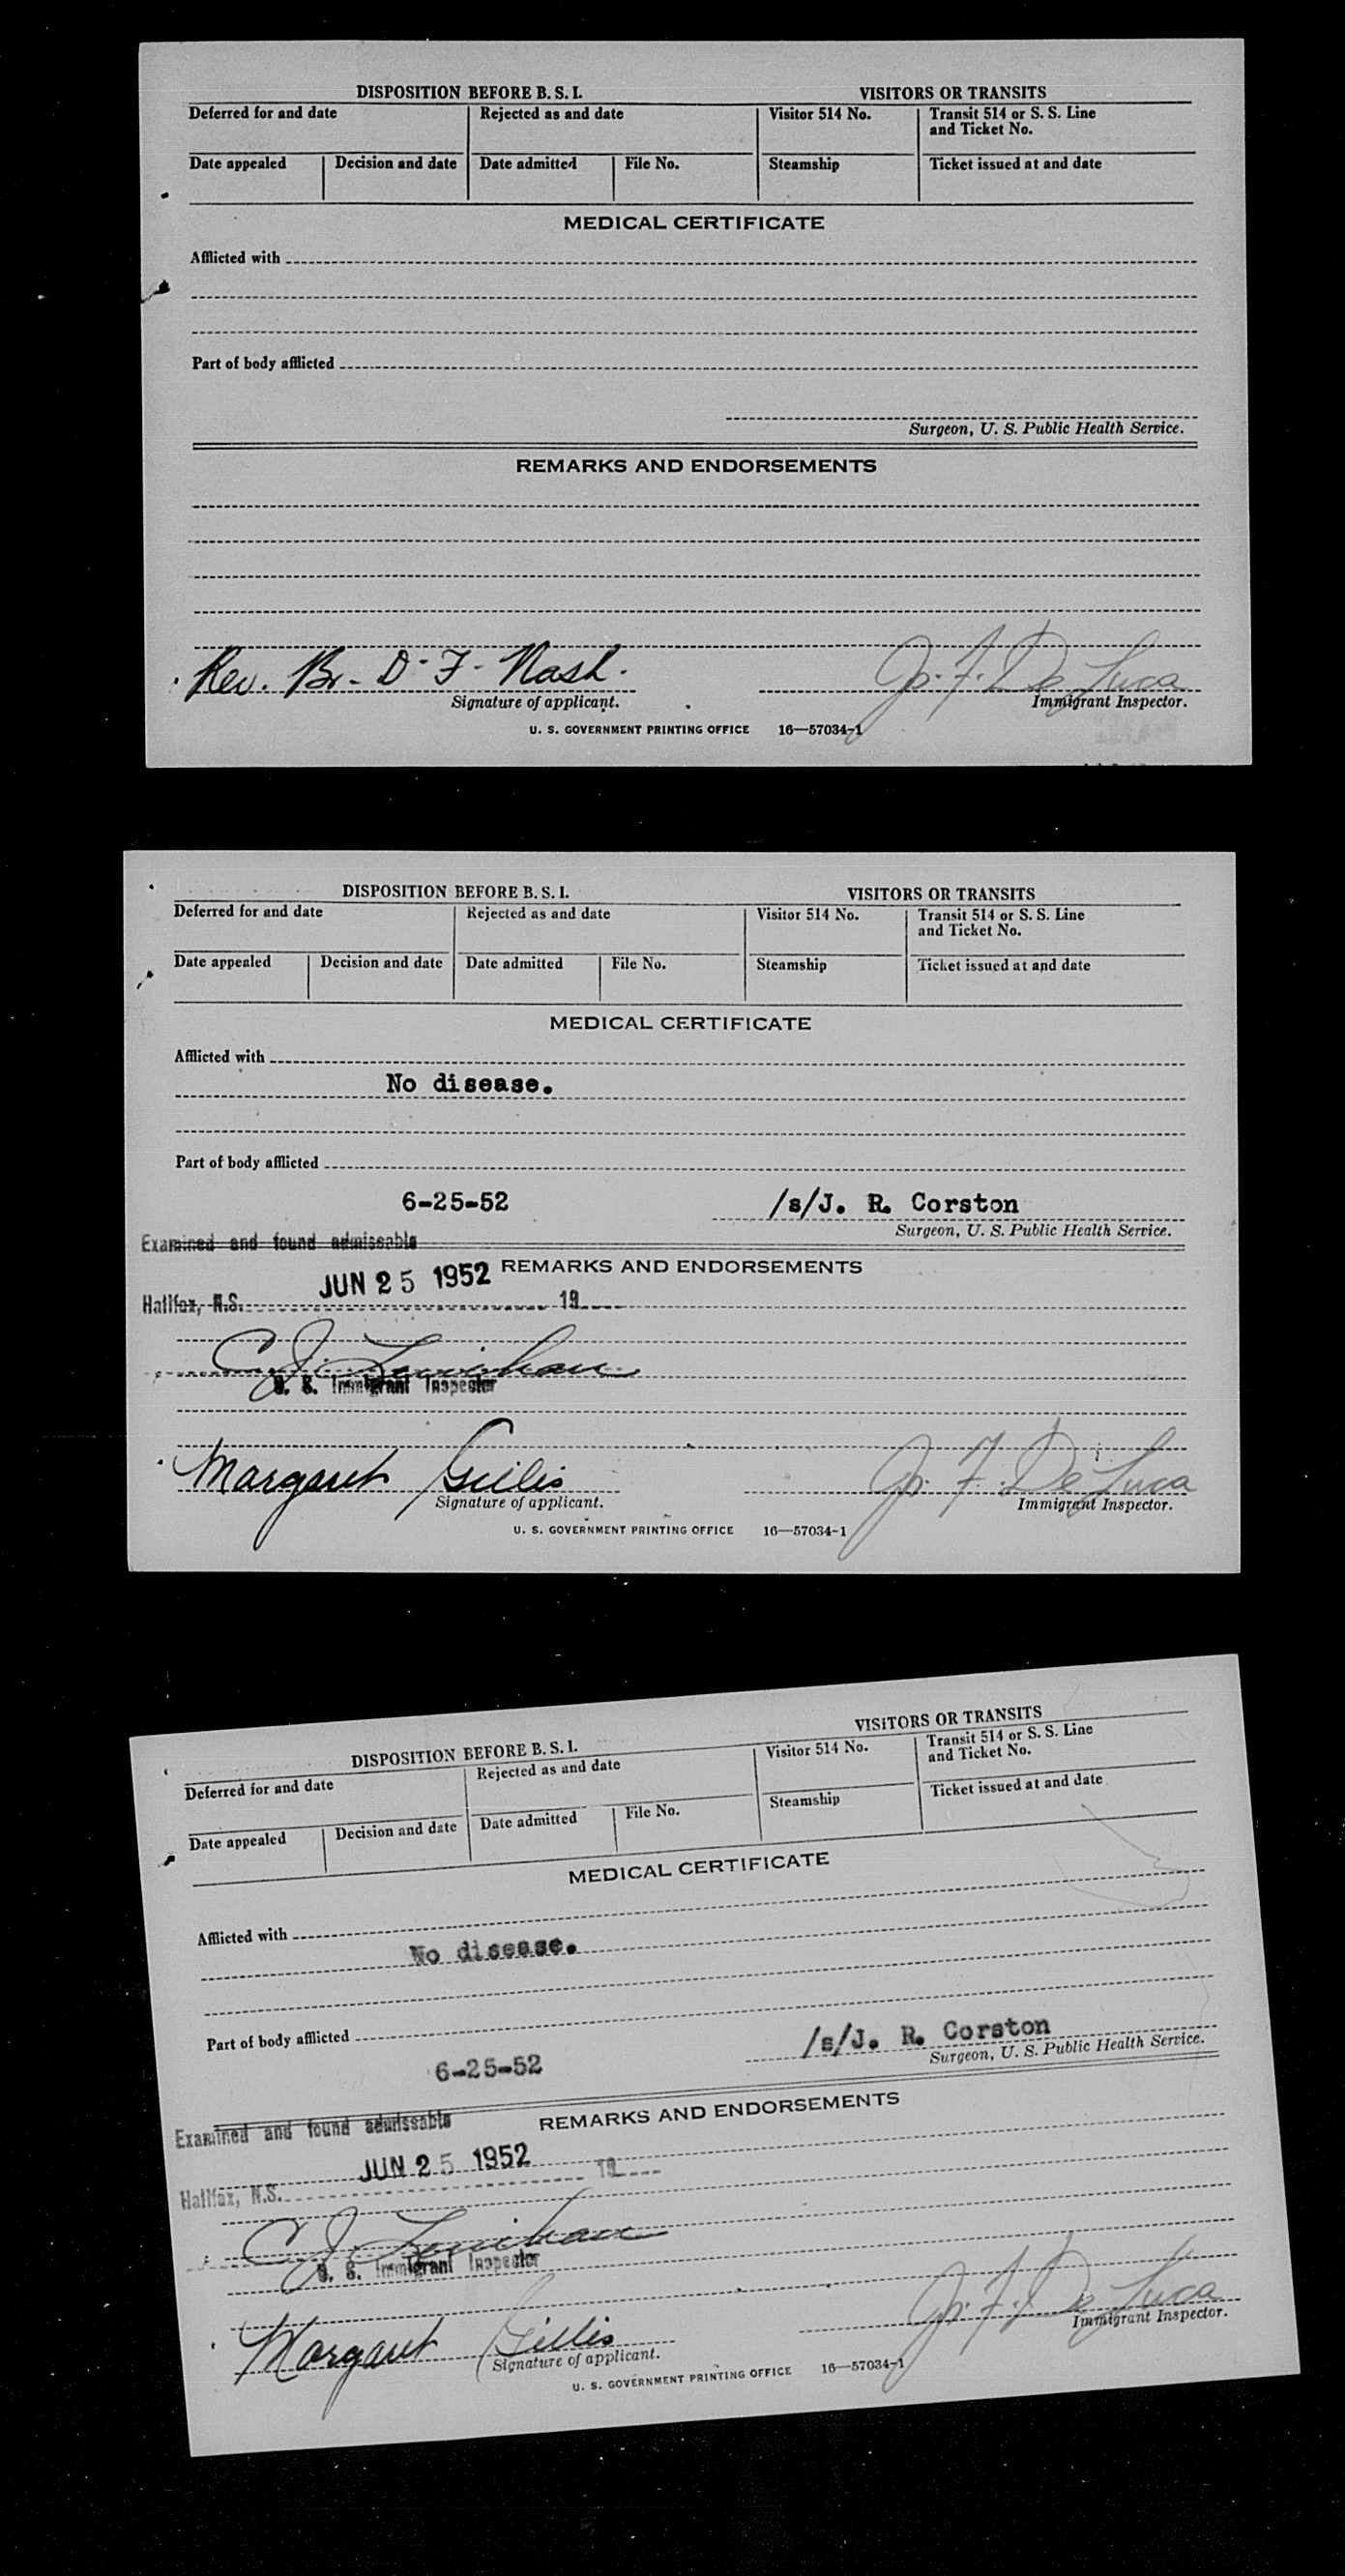 DISPOSITION BEFORE B. S. I. VISITORS OR TRANSITS
Deferred for and date Rejected as and date Visitor 514 No. Transit 514 or S. S. Line
and Ticket No.
Date appealed Decision and date Date admitted File No. Steamship Ticket issued at and date
MEDICAL CERTIFICATE
Afflicted with
Part of body afflicted
Surgeon, U. S. Public Health Service.
REMARKS AND ENDORSEMENTS
Rev. Br. D. F. Nash. J. F. De Luca
Signature of applicant. Immigrant Inspector.
U. S. GOVERNMENT PRINTING OFFICE 16—57034-1
DISPOSITION BEFORE B. S. I. VISITORS OR TRANSITS
Deferred for and date Rejected as and date Visitor 514 No. Transit 514 or S. S. Line
and Ticket No.
Date appealed Decision and date Date admitted File No. Steamship Ticket issued at and date
MEDICAL CERTIFICATE
Afflicted with
No disease.
Part of body afflicted
6-25-52 /s/J. R. Corston
Surgeon, U. S. Public Health Service.
Examined and found admissable
JUN 25 1952 REMARKS AND ENDORSEMENTS
Halifax, N.S. 19
C J Lenihan
U. S. Immigrant Inspector
Margaret Gillis J. F. De Luca
Signature of applicant. Immigrant Inspector.
U. S. GOVERNMENT PRINTING OFFICE 16—57034-1
DISPOSITION BEFORE B. S. I. VISITORS OR TRANSITS
Deferred for and date Rejected as and date Visitor 514 No. Transit 514 or S. S. Line
and Ticket No.
Date appealed Decision and date Date admitted File No. Steamship Ticket issued at and date
MEDICAL CERTIFICATE
Afflicted with
No disease.
Part of body afflicted
6-25-52 /s/J. R. Corston
Surgeon, U. S. Public Health Service.
Examined and found admissable REMARKS AND ENDORSEMENTS
JUN 25 1952
Halifax, N.S. 19
C J Lenihan
U. S. Immigrant Inspector
Margaret Gillis J. F. De Luca
Signature of applicant. Immigrant Inspector.
U. S. GOVERNMENT PRINTING OFFICE 16—57034-1